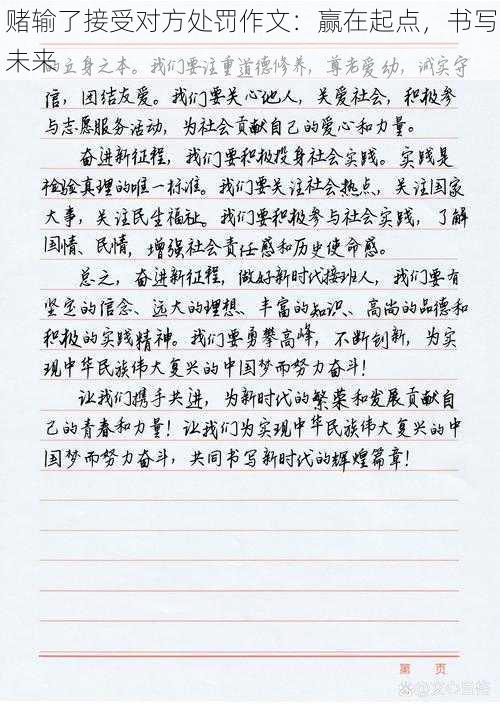 赌输了接受对方处罚作文：赢在起点，书写
未来
的立身之本。我们要注重道德修养，尊老爱幼，诚实守
信，团结友爱。我们要关心他人，关爱社会，积极参
与志愿服务活动，为社会贡献自己的爱心和力量。
奋进新征程，我们要积极投身社会实践。实践是
检验真理的唯一标准。我们要关注社会热点，关注国家
大事，关注民生福祉。我们要积极参与社会实践，了解
国情、民情，增强社会责任感和历史使命感。
总之，奋进新征程，做好新时代接班人，我们要有
坚定的信念、远大的理想、丰富的知识、高尚的品德和
积极的实践精神。我们要勇攀高峰，不断创新，为实
现中华民族伟大复兴的中国梦而努力奋斗！
让我们携手共进，为新时代的繁荣和发展贡献自
己的青春和力量！让我们为实现中华民族伟大复兴的中
国梦而努力奋斗，共同书写新时代的辉煌篇章！
第 页